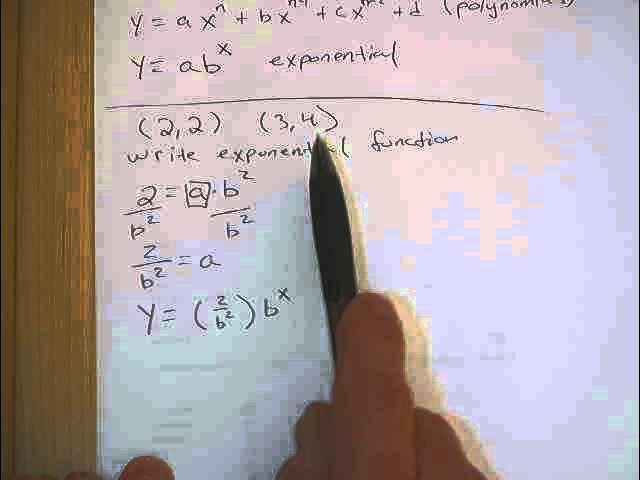 y = a xⁿ + b xⁿ⁻¹ + c xⁿ⁻² + d (polynomial)
y = ab^x exponential
(2,2) (3,4)
write exponential function
2/b² = a · b²/b²
2/b² = a
y = (2/b²) b^x